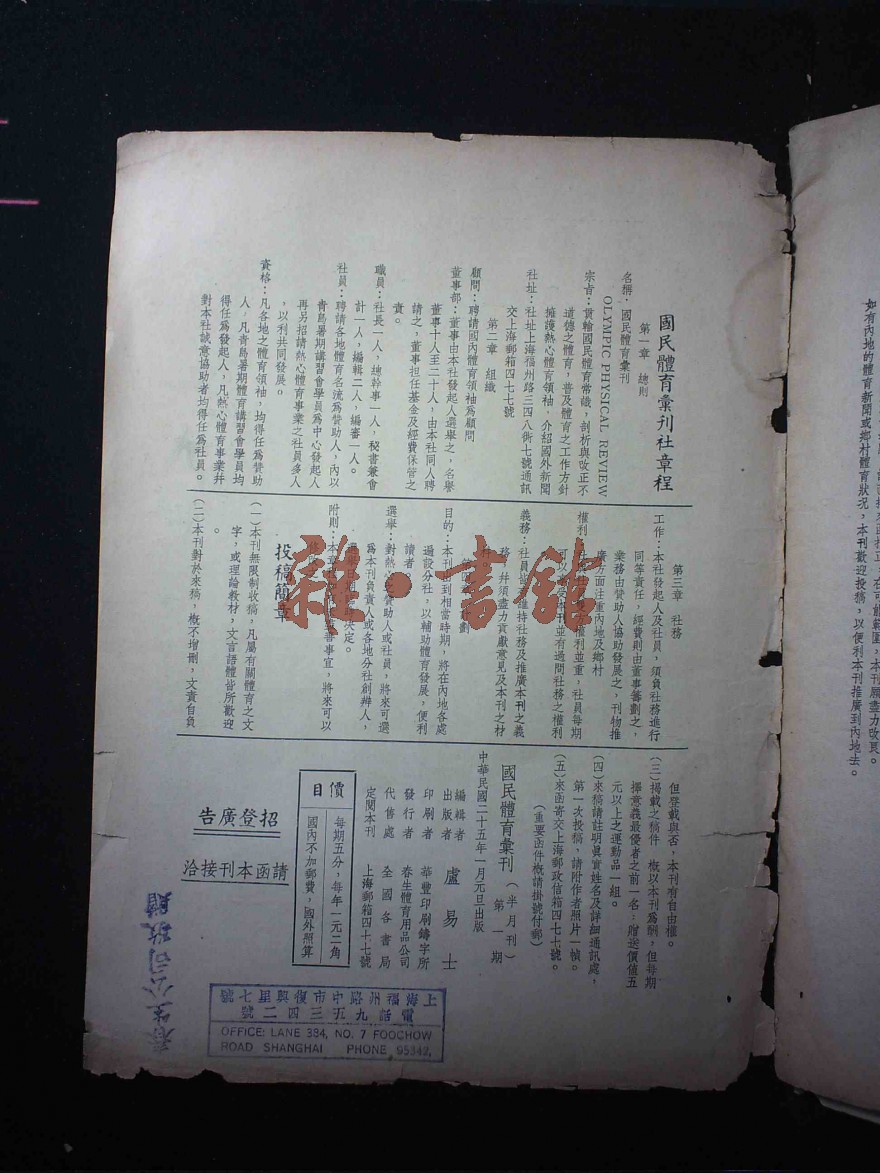 國民體育彙刊社章程
第一章 總則
名稱：國民體育彙刊
OLYMPIC PHYSICAL REVIEW
宗旨：貫輸國民體育常識，剖析與改正不
道德之體育，普及體育之工作方針
擁護熱心體育領袖，介紹國外新聞
社址：社址上海福州路三四八衖七號通訊
交上海郵箱四七七號
第二章 組織
顧問：聘請國內體育領袖為顧問
董事部：董事由本社發起人選舉之，名譽
董事十人至二十人，由本社同人聘
請之，董事担任基金及經費保管之
責。
職員：社長一人，總幹事一人，秘書兼會
計一人，編輯二人，編審一人。
社員：聘請各地體育名流為贊助人，內以
青島暑期講習會學員為中心發起人
再另招請熱心體育事業之社員多人
，以利共同發展。
資格：凡各地之體育領袖，均得任為贊助
人，凡青島暑期體育講習會學員均
得任為發起人，凡熱心體育事業并
對本社誠意協助者均得任為社員。
第三章 社務
工作：本社發起人及社員，須負社務進行
同等責任，經費則由董事籌劃之，
業務由贊助人協助發展之，刊物推
廣方面注重內地及鄉村
權利：權利並重，社員每期
可以本刊並有過問社務之權利
義務：社員皆維持社務及推廣本刊之義
務，并須盡力貢獻意見及本刊之材
料。
劃
目的：本刊到相當時期，將在內地各處
遍設分社，以輔助體育發展，便利
讀者
選舉：對熱心贊助人或社員，將來可選
為本刊負責人或各地分社創辦人，
決定。
附則：本章事宜，將來可以
投稿簡章
（一）本刊無限制收稿，凡屬有關體育之文
字，或理論教材，文言語體皆所歡迎
。
（二）本刊對於來稿，概不增刪，文責自負
但登載與否，本刊有自由權。
（三）揭載之稿件 概以本刊為酬，但每期
擇意義最優者之前一名，贈送價值五
元以上之運動品一組。
（四）來稿請註明眞實姓名及詳細通訊處，
第一次投稿，請附作者照片一幀。
（五）來函寄交上海郵政信箱四七七號。
（重要函件概請掛號付郵）
國民體育彙刊（半月刊）第一期
中華民國二十五年一月元旦出版
編輯者
出版者 盧易士
印刷者 華豐印刷鑄字所
發行者 春生體育用品公司
代售處 全國各書局
定閱本刊 上海郵箱四七七號
價目
每期五分，每年一元二角
國內不加郵費，國外照算
招登廣告
請函本刊接洽
春生公司敬贈
上海福州路中市復興里七號
電話九五三四二號
OFFICE: LANE 384, NO. 7 FOOCHOW
ROAD SHANGHAI PHONE 95342,
雜·書館
本刊願盡力改良。
如有內地的體育新聞或鄉村體育狀況，本刊歡迎投稿，以便利本刊推廣到內地去。